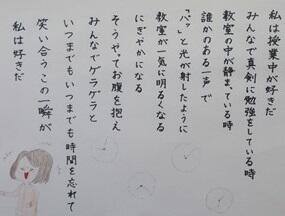 私は授業中が好きだ
みんなで真剣に勉強をしている時
教室の中が静まっている時
誰かのある一声で
「パッ」と光が射したように
教室が一気に明るくなる
にぎやかになる
そうやってお腹を抱え
みんなでゲラゲラと
いつまでもいつまでも時間を忘れて
笑い合うこの一瞬が
私は好きだ